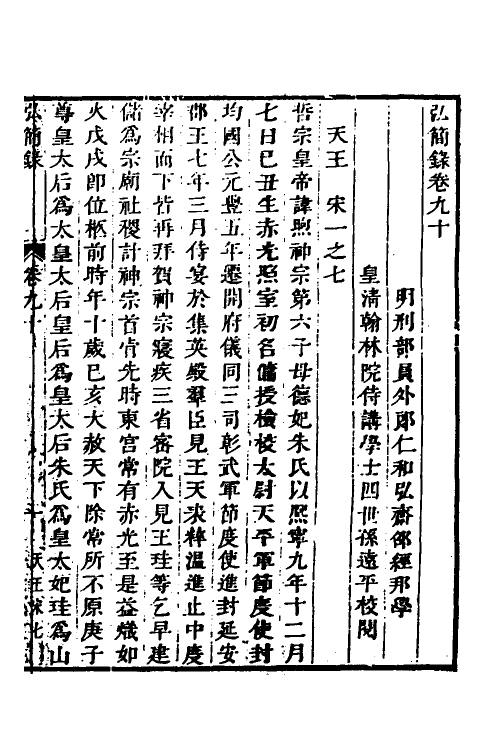 弘簡錄卷九十
明刑部員外郎仁和弘齋邵經邦學
皇清翰林院侍講學士四世孫遠平校閱
天王 宋一之七
哲宗皇帝諱煦神宗第六子母德妃朱氏以熙寧九年十二月
七日己丑生赤光照室初名傭授檢校太尉天平軍節度使封
均國公元豐五年遷開府儀同三司彰武軍節度使進封延安
郡王七年三月侍宴於集英殿羣臣見王天表粹溫進止中度
宰相而下皆再拜賀神宗寢疾三省密院入見王珪等乞早建
儲爲宗廟社稷計神宗首肯先時東宮常有赤光至是益熾如
火戊戌卽位柩前時年十歲己亥大赦天下除常所不原庚子
尊皇太后爲太皇太后皇后爲皇太后朱氏爲皇太妃珪爲山
弘簡錄 卷九十 天王宋七